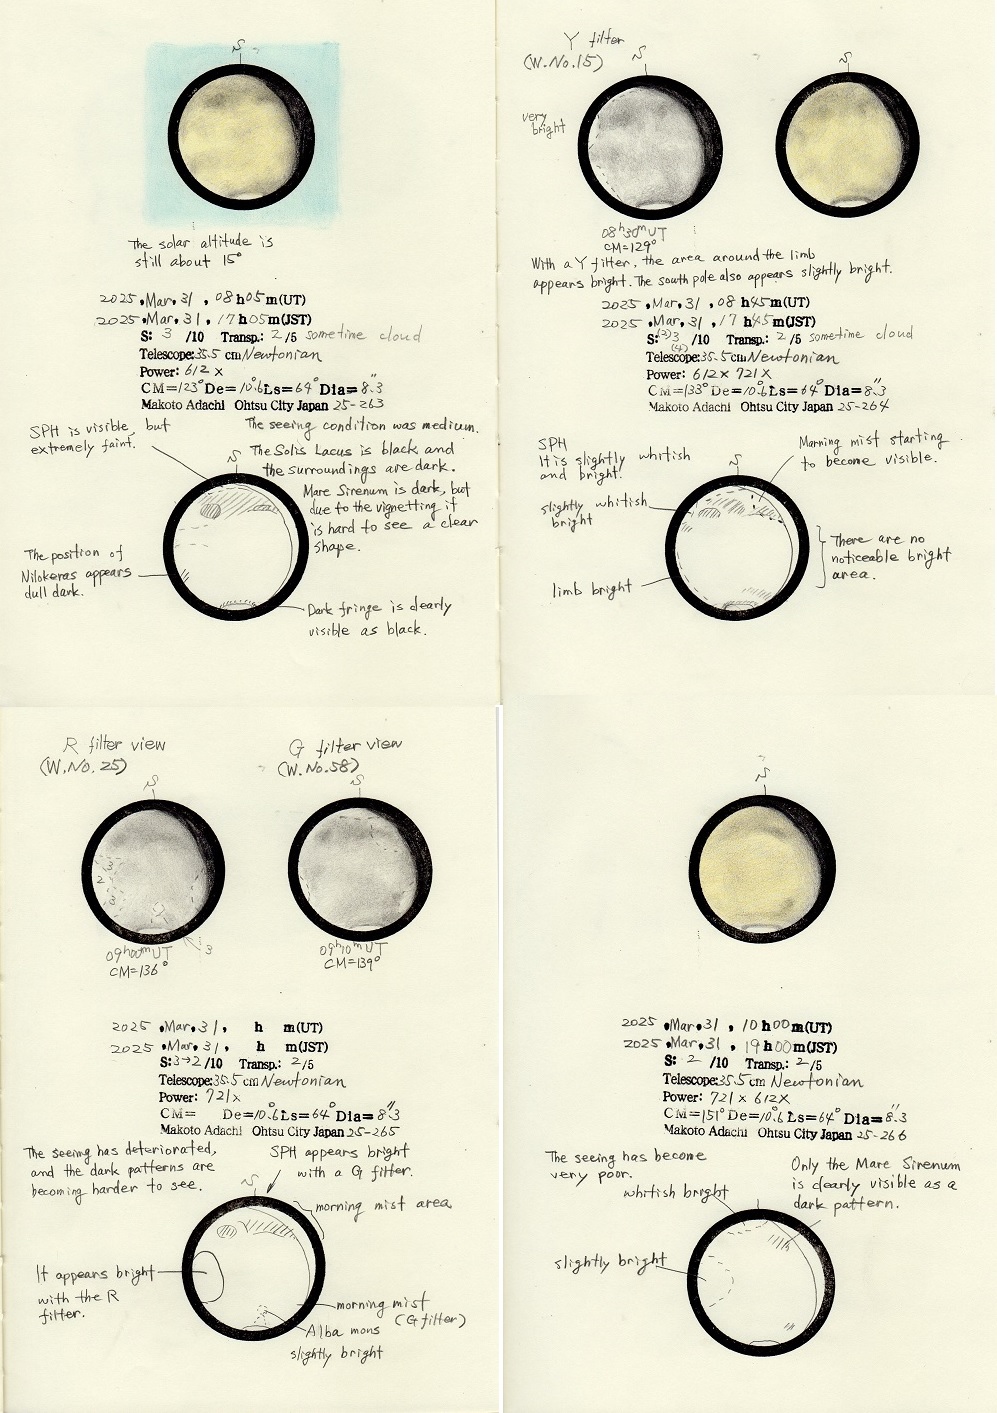 S
The solar altitude is
still about 15°
2025 .Mar. 31 , 08 h 05 m(UT)
2025 .Mar. 31 , 17 h 05 m(JST)
S: 3 /10 Transp.: 2 /5 sometime cloud
Telescope:35.5 cm Newtonian
Power: 612 x
CM=123° De=10.6° Ls=64° Dia=8.3"
Makoto Adachi Ohtsu City Japan 25-263
SPH is visible, but
extremely faint.
The seeing condition was medium.
S
The Solis Lacus is black and
the surroundings are dark.
Mare Sirenum is dark, but
due to the vignetting it
is hard to see a clear
shape.
The position of
Nilokeras appears
dull dark.
Dark fringe is clearly
visible as black.
Y filter
(W.No.15)
S
S
very
bright
08h30m UT
CM=129°
With a Y filter, the area around the limb
appears bright. The south pole also appears slightly bright.
2025 .Mar. 31 , 08 h 45 m(UT)
2025 .Mar. 31 , 17 h 45 m(JST)
S: (2)3(4) /10 Transp.: 2 /5 sometime cloud
Telescope:35.5 cm Newtonian
Power: 612 x 721 x
CM=133° De=10.6° Ls=64° Dia=8.3"
Makoto Adachi Ohtsu City Japan 25-264
SPH
It is slightly whitish
and bright.
S
Marning mist starting
to become visible.
slightly whitish
bright
There are no
noticeable bright
area.
limb bright
R filter view
(W.No.25)
S
2
3
3
3
09h00m UT
CM=136°
G filter view
(W.No.58)
S
09h10m UT
CM=139°
2025 .Mar. 31 , h m(UT)
2025 .Mar. 31 , h m(JST)
S: 3→2 /10 Transp.: 2 /5
Telescope:35.5 cm Newtonian
Power: 721x
CM= De=10.6° Ls=64° Dia=8.3"
Makoto Adachi Ohtsu City Japan 25-265
The seeing has deteriorated,
and the dark patterns are
becoming harder to see.
SPH appears bright
with a G filter.
S
morning mist area
It appears bright
with the R
filter.
morning mist
(G filter)
Alba mons
slightly bright
S
2025 .Mar. 31 , 10 h 00 m(UT)
2025 .Mar. 31 , 19 h 00 m(JST)
S: 2 /10 Transp.: 2 /5
Telescope:35.5 cm Newtonian
Power: 721 x 612 x
CM=151° De=10.6° Ls=64° Dia=8.3"
Makoto Adachi Ohtsu City Japan 25-266
The seeing has become
very poor.
Only the Mare Sirenum
is clearly visible as a
dark pattern.
whitish bright
S
slightly bright